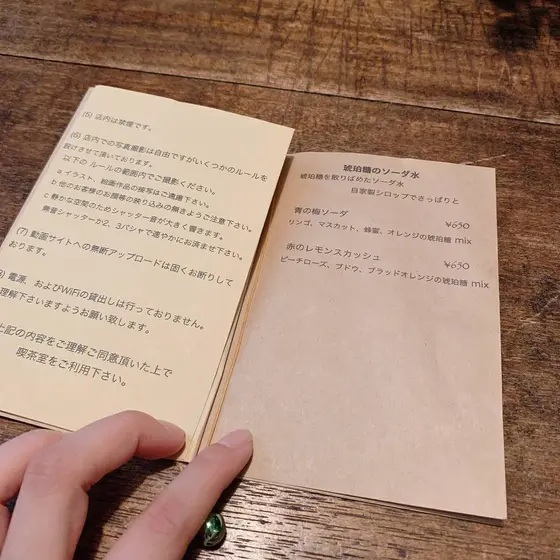 (5) 店内は禁煙です。
(6) 店内での写真撮影は自由ですがいくつかのルールを
設けさせて頂いております。
以下の ルールの範囲内でご撮影ください。
a イラスト、絵画作品の接写はご遠慮下さい。
b 他のお客様のお顔等の映り込みの無きようご注意下さい。
c 静かな空間のためシャッター音が大きく響きます。
無音シャッターか2、3パシャで速やかにお済ませ下さい。
(7) 動画サイトへの無断アップロードは固くお断りして
おります。
) 電源、およびWiFiの貸出しは行っておりません。
理解下さいますようお願い致します。
上記の内容をご理解ご同意頂いた上で
喫茶室をご利用下さい。
琥珀糖のソーダ水
琥珀糖を散りばめたソーダ水
自家製シロップでさっぱりと
青の梅ソーダ ¥650
リンゴ、マスカット、蜂蜜、オレンジの琥珀糖 mix
赤のレモンスカッシュ ¥650
ピーチローズ、ブドウ、ブラッドオレンジの琥珀糖 mix